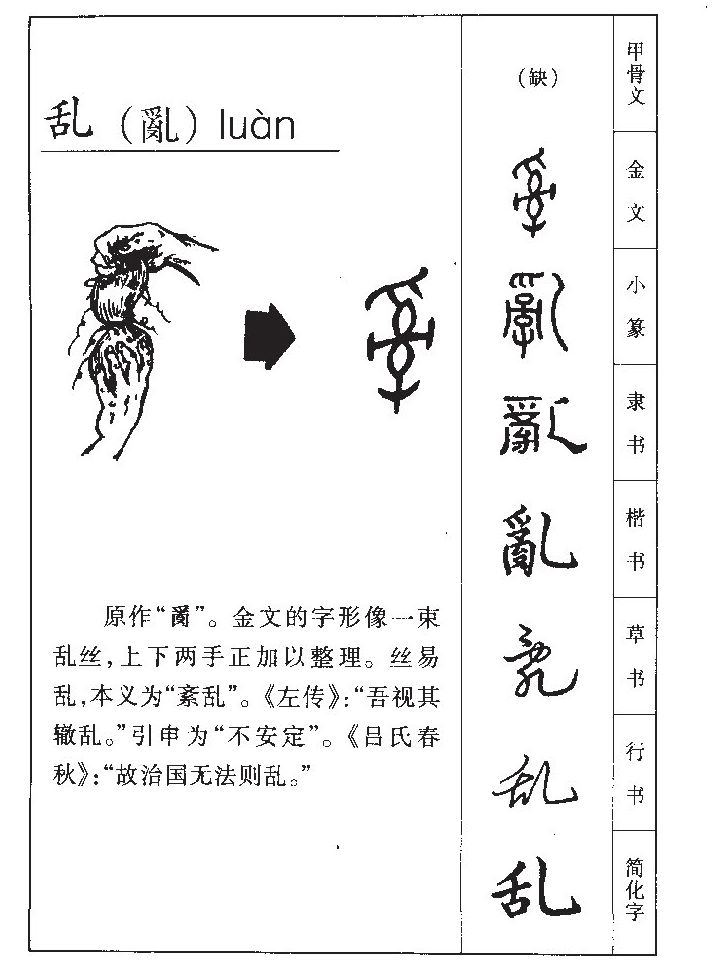 乱（亂）luàn
原作“𤔔”。金文的字形像一束
乱丝，上下两手正加以整理。丝易
乱，本义为“紊乱”。《左传》：“吾视其
辙乱。”引申为“不安定”。《吕氏春
秋》：“故治国无法则乱。”
（缺）
甲骨文
金文
小篆
亂
隶书
亂
楷书
亂
草书
乱
行书
乱
简化字
乱